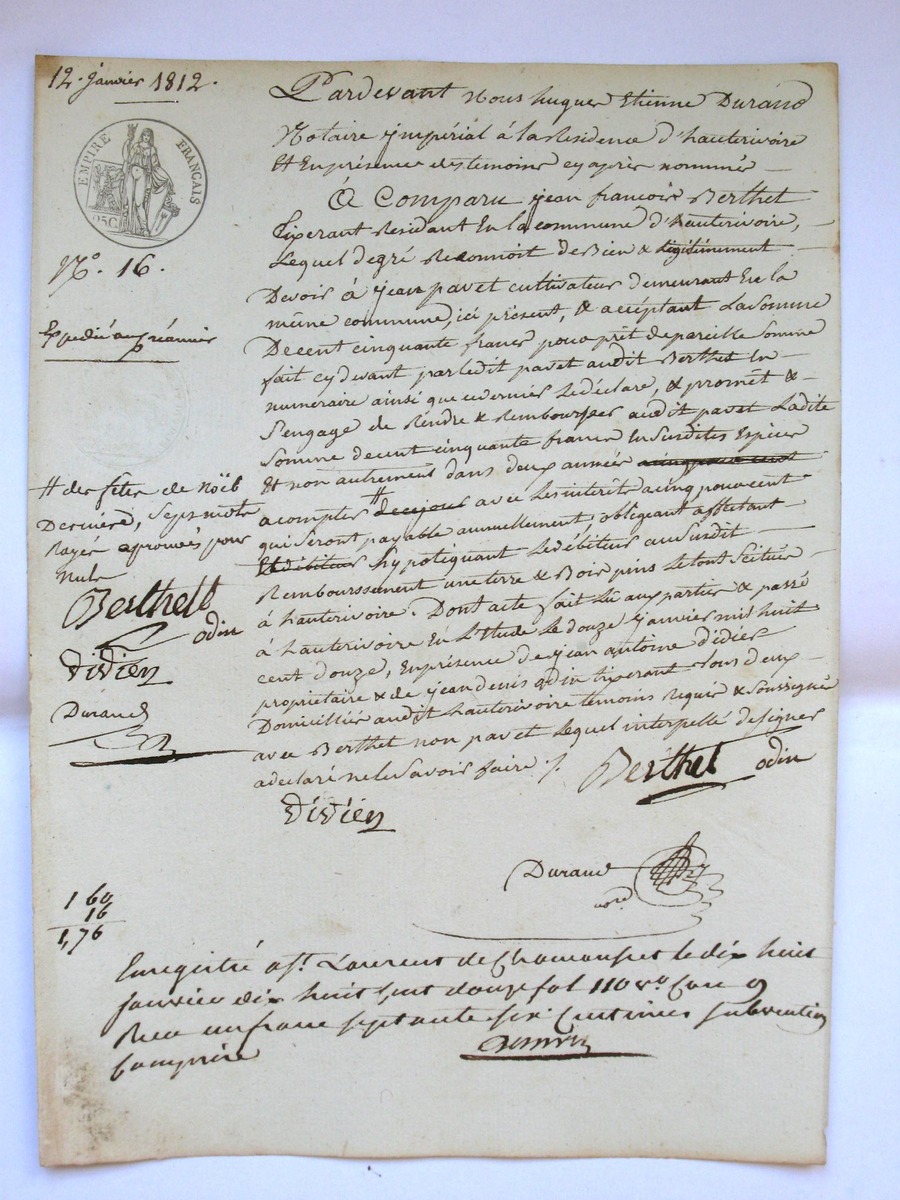 12. janvier 1812.
EMPIRE FRANÇAIS
05C
N.º 16.
Expedié au créancier
Pardevant Nous hugues Etienne Durand
Notaire jmpérial à la Residence d'hauterivoire
Et En présence des temoins cy après nommés
A Comparu jean françois Berthet
Tixerant Residant En la commune d'hauterivoire,
Lequel de gré Reconnoit de Bien & légitimement
Devoir à jean pavet cultivateur demeurant En la
même commune, ici présent, & accéptant La Somme
De cent cinquante francs pour prêt de pareille Somme
fait cy devant par ledit pavet audit Berthet En
numéraire ainsi que ce dernier Le déclare, & promêt &
S'engage de Rendre & Rembourser audit pavet Ladite
Somme de cent cinquante francs En Susdites Espèces
Et non autrement dans deux années
a compter # de ce jour avec Les interêts a cinq pour cent
qui Seront payable annuellement, obligeant affectant
Et débiteur hypotéquant Le débiteur au Susdit
Rembourssement une terre & Bois pins Le tout Scitués
à hauterivoire. Dont acte fait Lû aux parties & passé
à hauterivoire En L'Etude Le douze janvier mil huit
cent douze, En présence de jean antoine didier
propriétaire & de jean denis odin tixerant tous deux
Domicilliés audit hauterivoire temoins Requis & Soussignés
avec Berthet non pavet Lequel interpellé de signer
a declaré ne le Savoir faire /.
Berthet odin
didier
# des fêtes de Noël
Dernière, Sept mots
Rayés aprouvés pour
Nuls
Berthet
odin
didier
Durand
Durand
nore
1 60
16
1,76
Enregistré a St. Laurent de Chamousset le dix huit
janvier dix huit cent douze fol 110 vo Case 9
Reçu un franc septante six Centimes subvention
Comprise